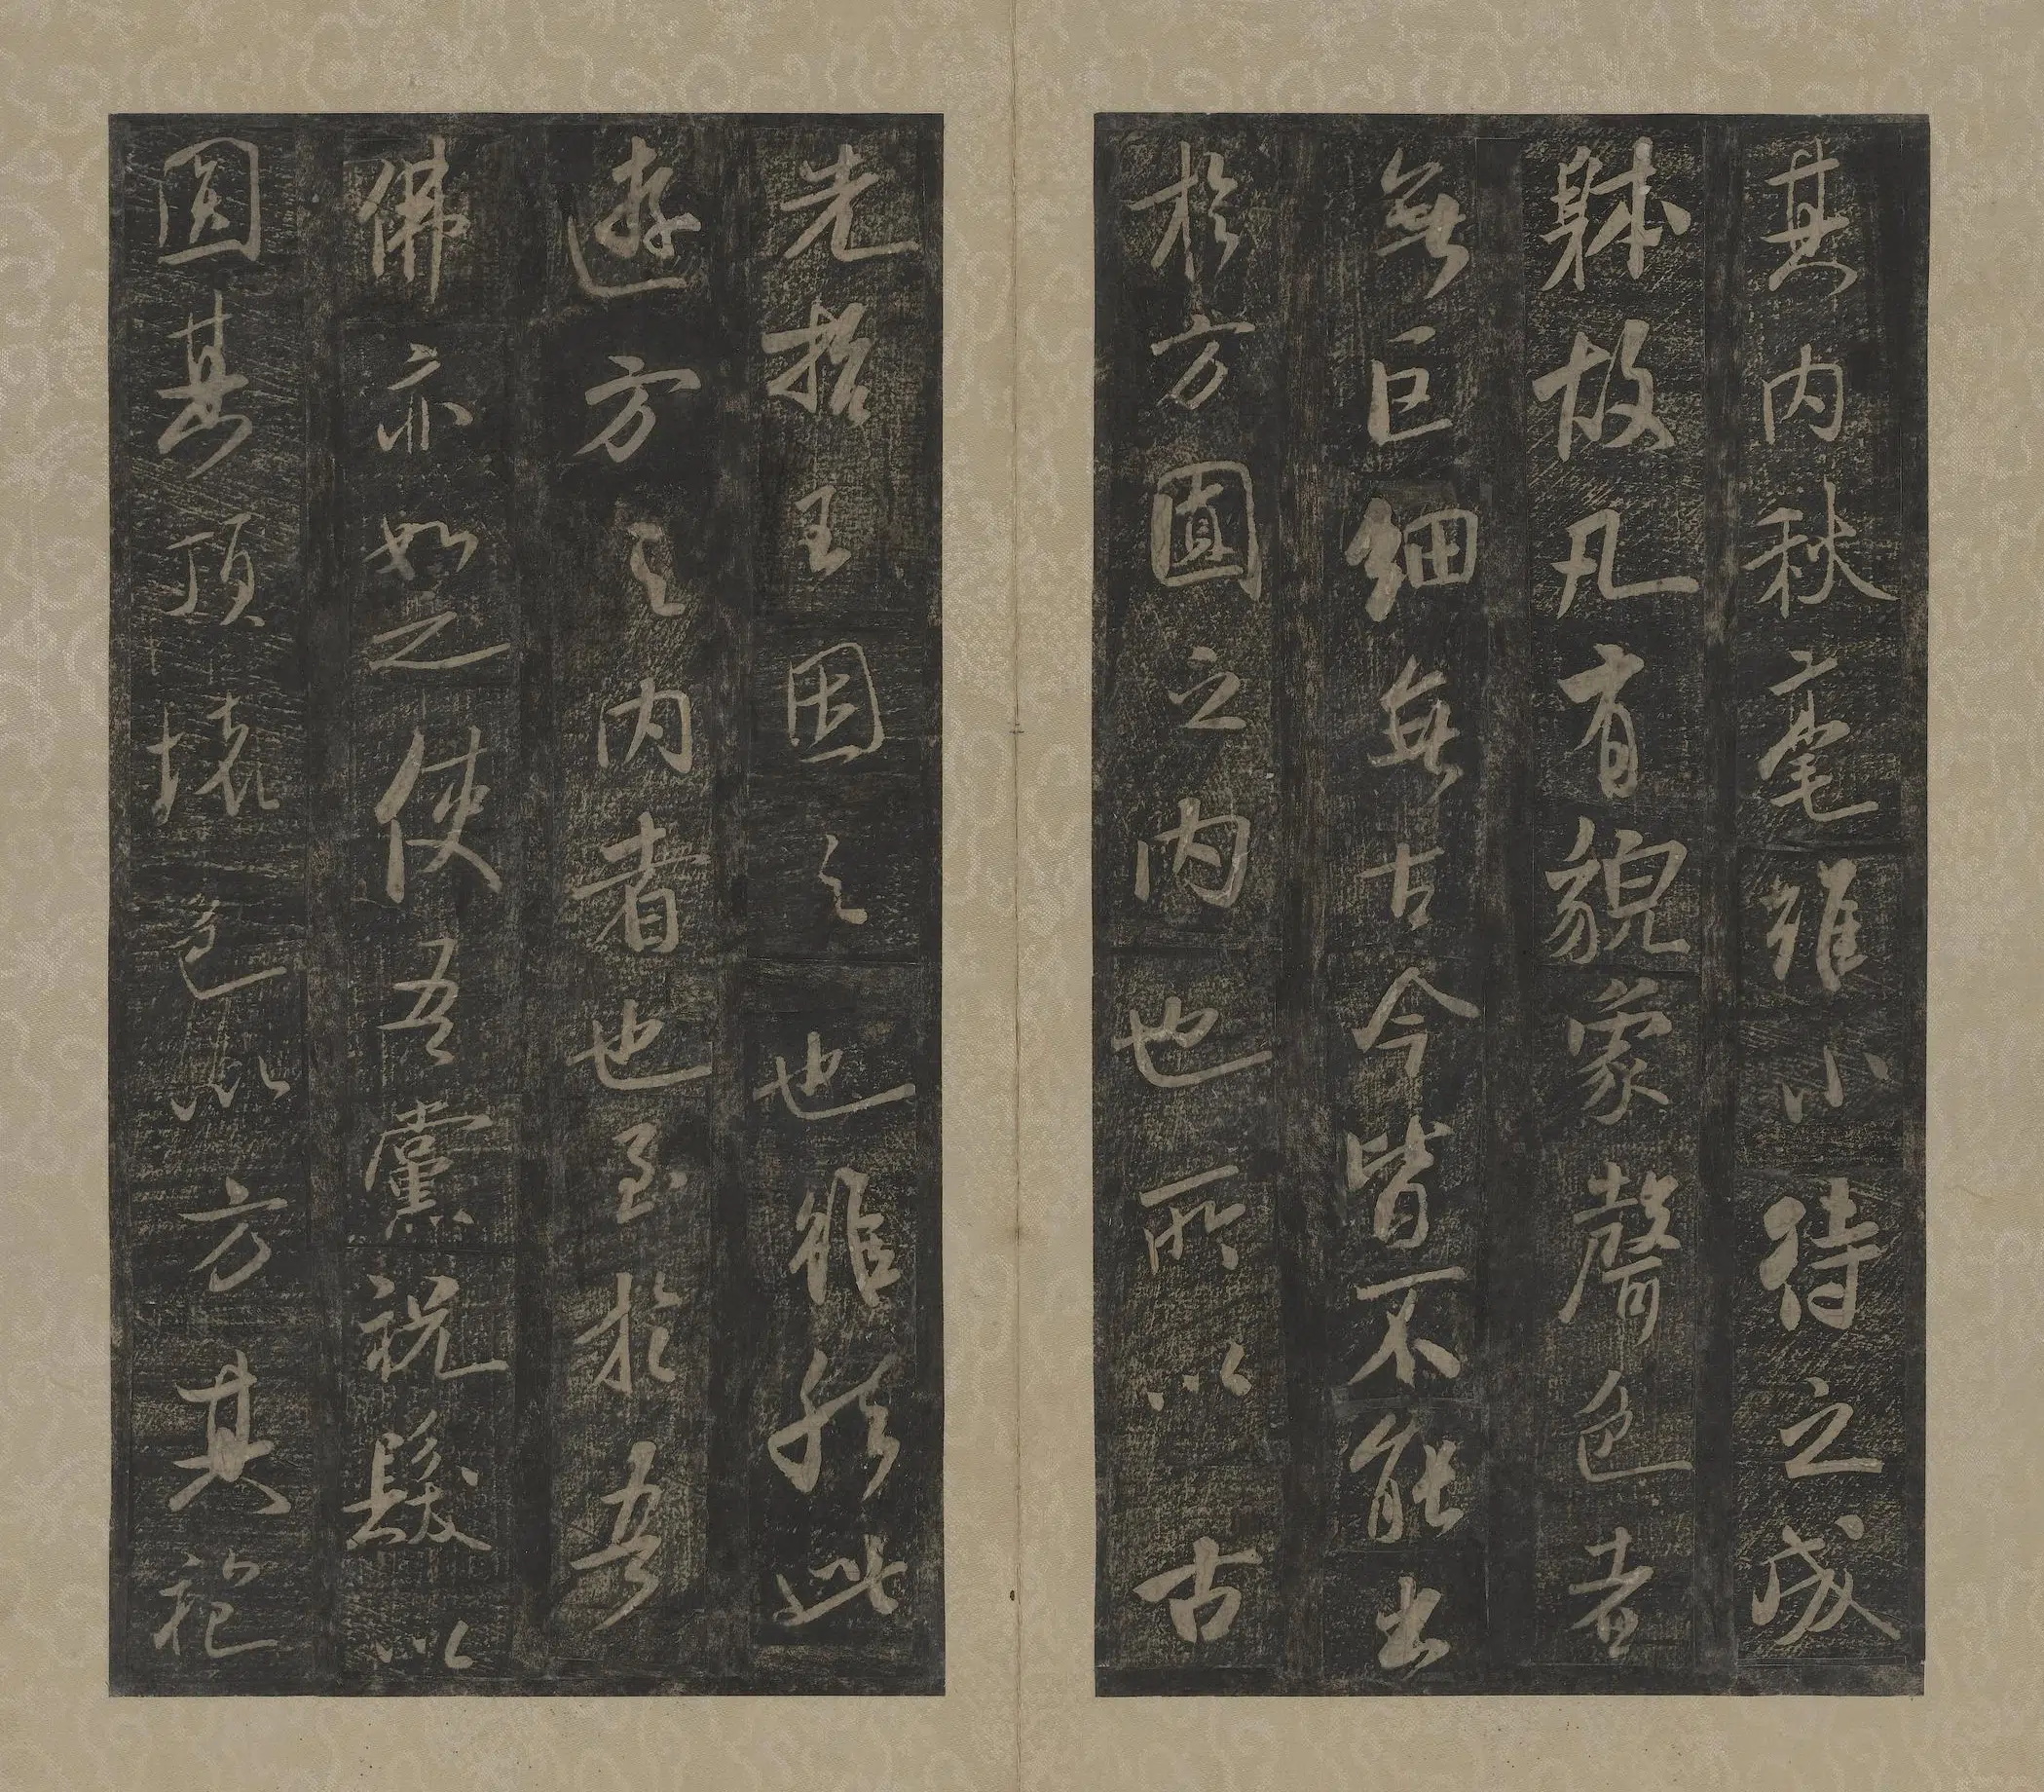 其内秋毫雖小待之成
躰故凡有貌象聲色者
無巨細無古今皆不能出
於方圓之内也所以古
先哲王因之也雖然此
遊方之内者也至於吾
佛亦如之使吾黨祝髮以
圓其頂壞色以方其袍